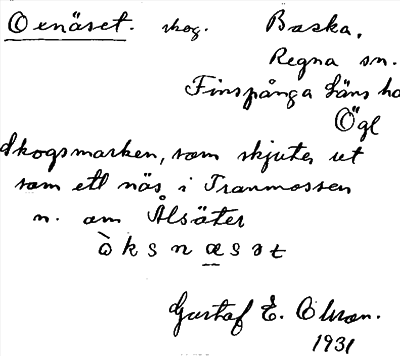 Oxnäset. skog. Backa,
Regna sn.
Finspånga läns hd
Ögl
Skogsmarken, som skjuter ut
som ett näs i Tranmossen
n. om Ålsäter
ò k s n æ s ə t
Gustaf E. Olson.
1931